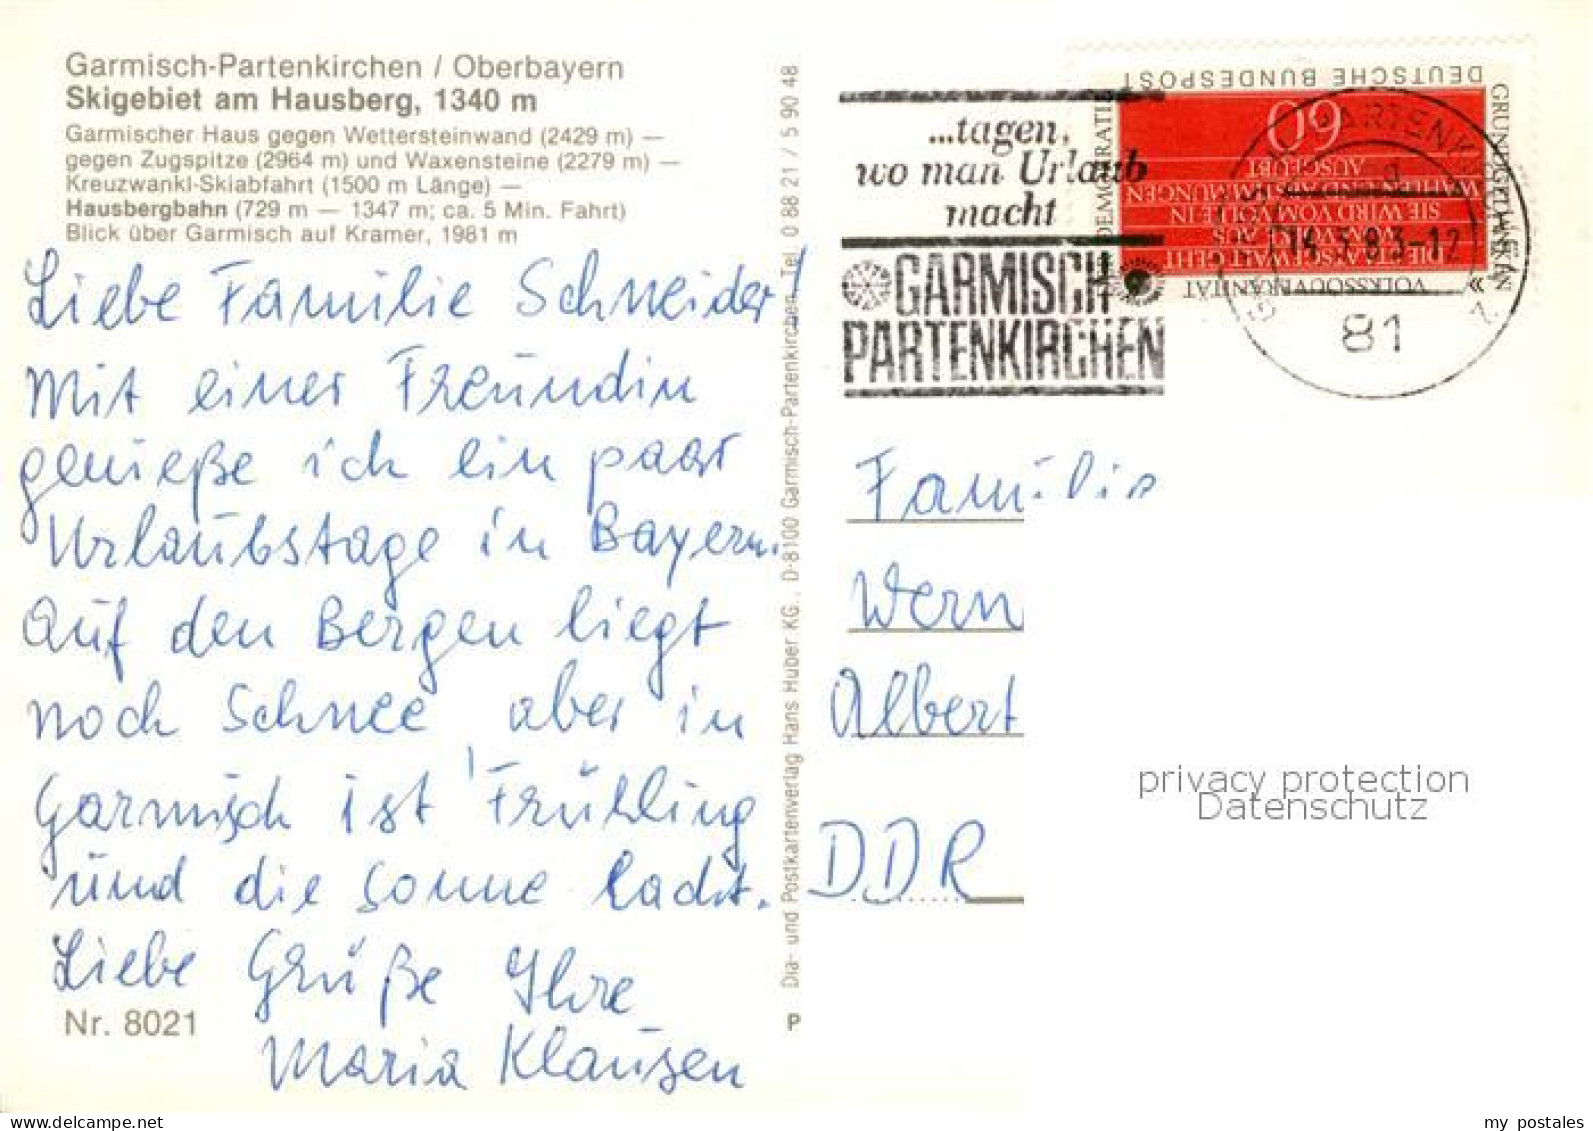 Garmisch-Partenkirchen / Oberbayern
Skigebiet am Hausberg, 1340 m
Garmischer Haus gegen Wettersteinwand (2429 m) —
gegen Zugspitze (2964 m) und Waxensteine (2279 m) —
Kreuzwankl-Skiabfahrt (1500 m Länge) —
Hausbergbahn (729 m — 1347 m; ca. 5 Min. Fahrt)
Blick über Garmisch auf Kramer, 1981 m
Liebe Familie Schneider!
Mit einer Freundin
genieße ich ein paar
Urlaubstage in Bayern.
Auf den Bergen liegt
noch Schnee, aber in
Garmisch ist Frühling
und die Sonne lacht.
Liebe Grüße Ihre
Maria Klausen
Nr. 8021
Dia- und Postkartenverlag Hans Huber KG., D-8100 Garmisch-Partenkirchen, Tel. 0 88 21 / 5 90 48
P
...tagen,
wo man Urlaub
macht
GARMISCH
PARTENKIRCHEN
DEUTSCHE BUNDESPOST
60
GRUNDGEDANKEN
DEMOKRATIE
VOLKSSOUVERÄNITÄT
DIE STAATSGEWALT GEHT
VOM VOLKE AUS
SIE WIRD VOM VOLKE IN
WAHLEN UND ABSTIMMUNGEN
AUSGEÜBT
83-12
81
Familie
Wern
Albert
DDR
privacy protection
Datenschutz
my postales